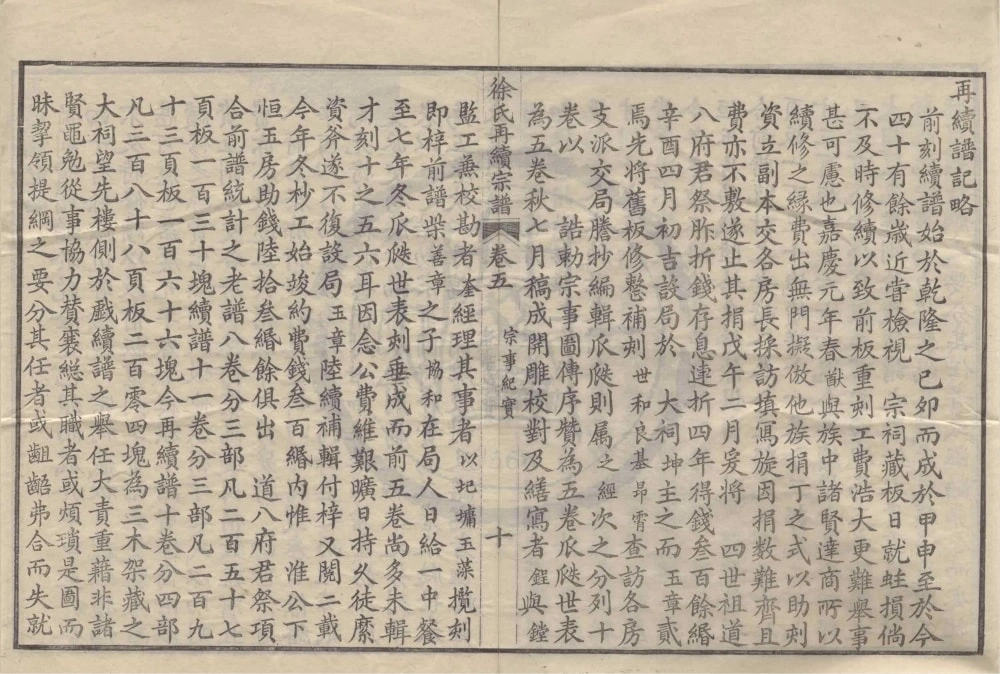 再續譜記略
前刻續譜始於乾隆之己卯而成於甲申至於今
四十有餘歲近嘗檢視　宗祠藏板日就蛀損倘
不及時修續以致前板重刻工費浩大更難舉事
甚可慮也嘉慶元年春猷與族中諸賢達商所以
續修之緣費出無門擬倣他族捐丁之式以助刻
資立副本交各房長採訪填寫旋因捐数難齊且
費亦不敷遂止其捐戊午二月爰將　四世祖道
八府君祭胙折錢存息連折四年得錢叁百餘緡
辛酉四月初吉設局於　大祠坤主之而玉章貳
焉先將舊板修整補刻世和良基昻霄查訪各房
支派交局謄抄編輯瓜瓞則属之經次之分列十
卷以　誥勅宗事圖傳序贊為五卷瓜瓞世表
為五卷秋七月稿成開雕校對及繕寫者鋥與鏜
徐氏再續宗譜　卷五　宗事紀實　十
監工兼校勘者奎經理其事者以圯墉玉藻攬刻
即梓前譜柴善章之子協和在局人日給一中餐
至七年冬瓜瓞世表刻垂成而前五卷尚多未輯
才刻十之五六耳因念公費維艱曠日持久徒縻
資斧遂不復設局玉章陸續補輯付梓又閱二載
今年冬杪工始竣約費錢叁百緡内惟　淮公下
恒五房助錢陸拾叁緡餘俱出　道八府君祭項
合前譜統計之老譜八卷分三部凡二百五十七
頁板一百三十塊續譜十一卷分三部凡二百九
十三頁板一百六十六塊今再續譜十卷分四部
凡三百八十八頁板二百零四塊為三木架藏之
大祠望先樓側於戲續譜之舉任大責重藉非諸
賢黽勉從事協力賛襄総其職者或煩瑣是圖而
昧挈領提綱之要分其任者或齟齬弗合而失就